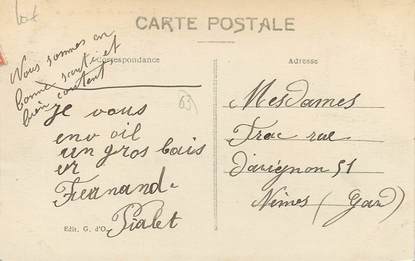 lot
CARTE POSTALE
Correspondance
Adresse
Nous sommes en
bonne santé et
bien content
63
je vous
envoil
un gros bais
er
Fernand
Pialet
Mesdames
Trac rue
d'avignon 51
Nimes (Gard)
Edit. G. d'O.